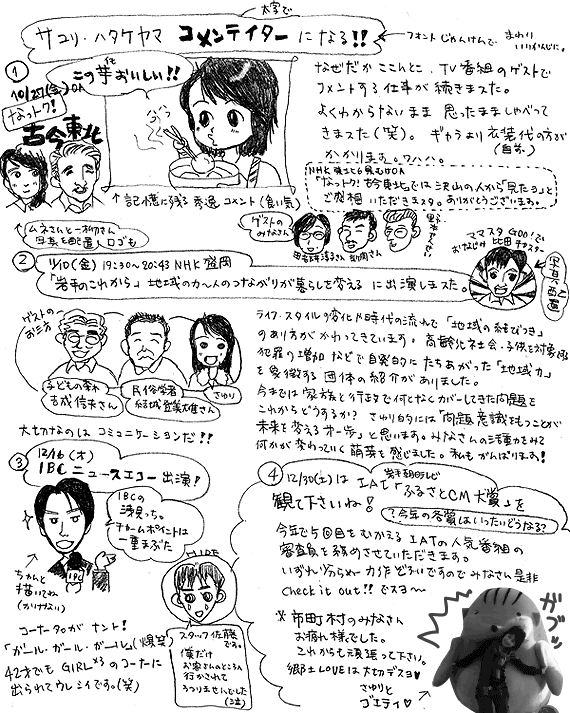 太字で
サユリ・ハタケヤマ コメンテイターになる!!
フォントじゃんけんで まわり
いいかんじに。
①
この芋おいしい!!
10/27(金)OA
なっトク!
古今東北
なぜだか ここんとこ、TV番組のゲストで
コメントする仕事が 続きました。
よくわからないまま 思ったまましゃべって
きました(笑)。 ギャラより衣装代の方が
かかります。ワハハ。
(自前)
↑記憶に残る 秀逸 コメント(食い気)
「なっトク!古今東北」では沢山の人から「見たョ」と
ご感想 いただきまスタ。ありがとうございます。
ゲストの
みなさん
②
11/10(金) 19:30〜20:43 NHK 盛岡
「岩手のこれから」 地域のカ〜人のつながりが暮らしを変える に出演しまスた。
写真配置
ゲストの
お三方
子どもの森
吉成信夫さん
民俗学者
結城登美雄さん
さゆり
大切なのは コミュニケーションだ!!
ライフ・スタイルの変化や時代の流れで 「地域の結びつき」
のあり方が かわってきています。高齢化社会・子供を対象の
犯罪の増加 などで自発的に たちあがった「地域力」
を象徴する 団体の紹介がありました。
今までは 家族と行政で何となくカバーしてきた問題を
これからどうするか? さゆり的には「問題意識をもつことが
未来を変える 第一歩」と思います。みなさんの活動をみてる
何かが変わっていく 萌芽を感じました。私も がんばります!
③
12/6(木)
IBC ニュースエコー 出演!
IBCの
チャームポイントは
一重まぶた
IBC
ちゃんと
描いてね
(かけない)
コーナータイトルが ナント!
「ガール・ガール・ガール」(爆笑)
42才でもGIRL×3のコーナーに
出られてウレシイです。(笑)
スタッフ佐藤
です。
僕だけ
お客さんのところへ
行かされて
うつりませんでした
(泣)
④
12/30(土)は IAT
岩手朝日テレビ
「ふるさとCM大賞」を
観て下さいね!
?今年の各賞はいったいどうなる?
今年で5回目をむかえる IATの人気番組の
審査員を務めさせていただきます。
いずれ劣らぬ 力作ぞろいですので みなさん 是非
check it out!! でスヨ〜
※市町村のみなさん
お疲れ様でした。
これからも頑張って下さい。
郷土LOVEは大切デスヨ♡
さゆりと
ゴエティ♡
ガブッ